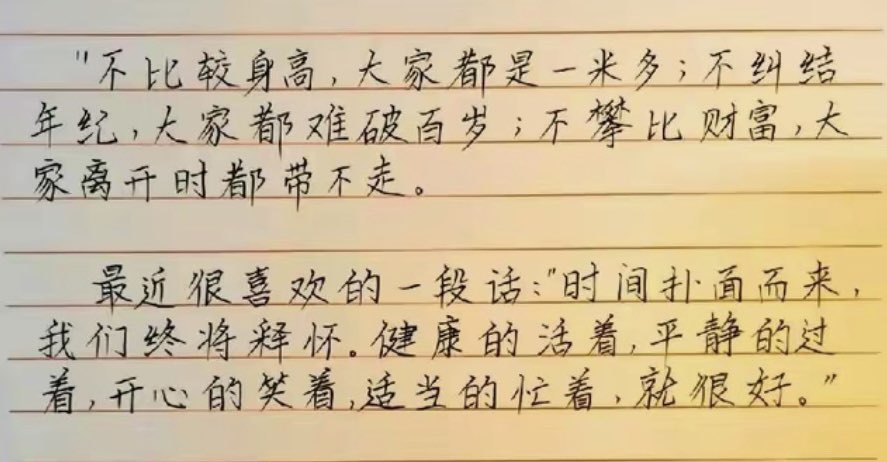 "不比较身高,大家都是一米多;不纠结
年纪,大家都难破百岁;不攀比财富,大
家离开时都带不走。
最近很喜欢的一段话:"时间扑面而来,
我们终将释怀。健康的活着,平静的过
着,开心的笑着,适当的忙着,就很好。"